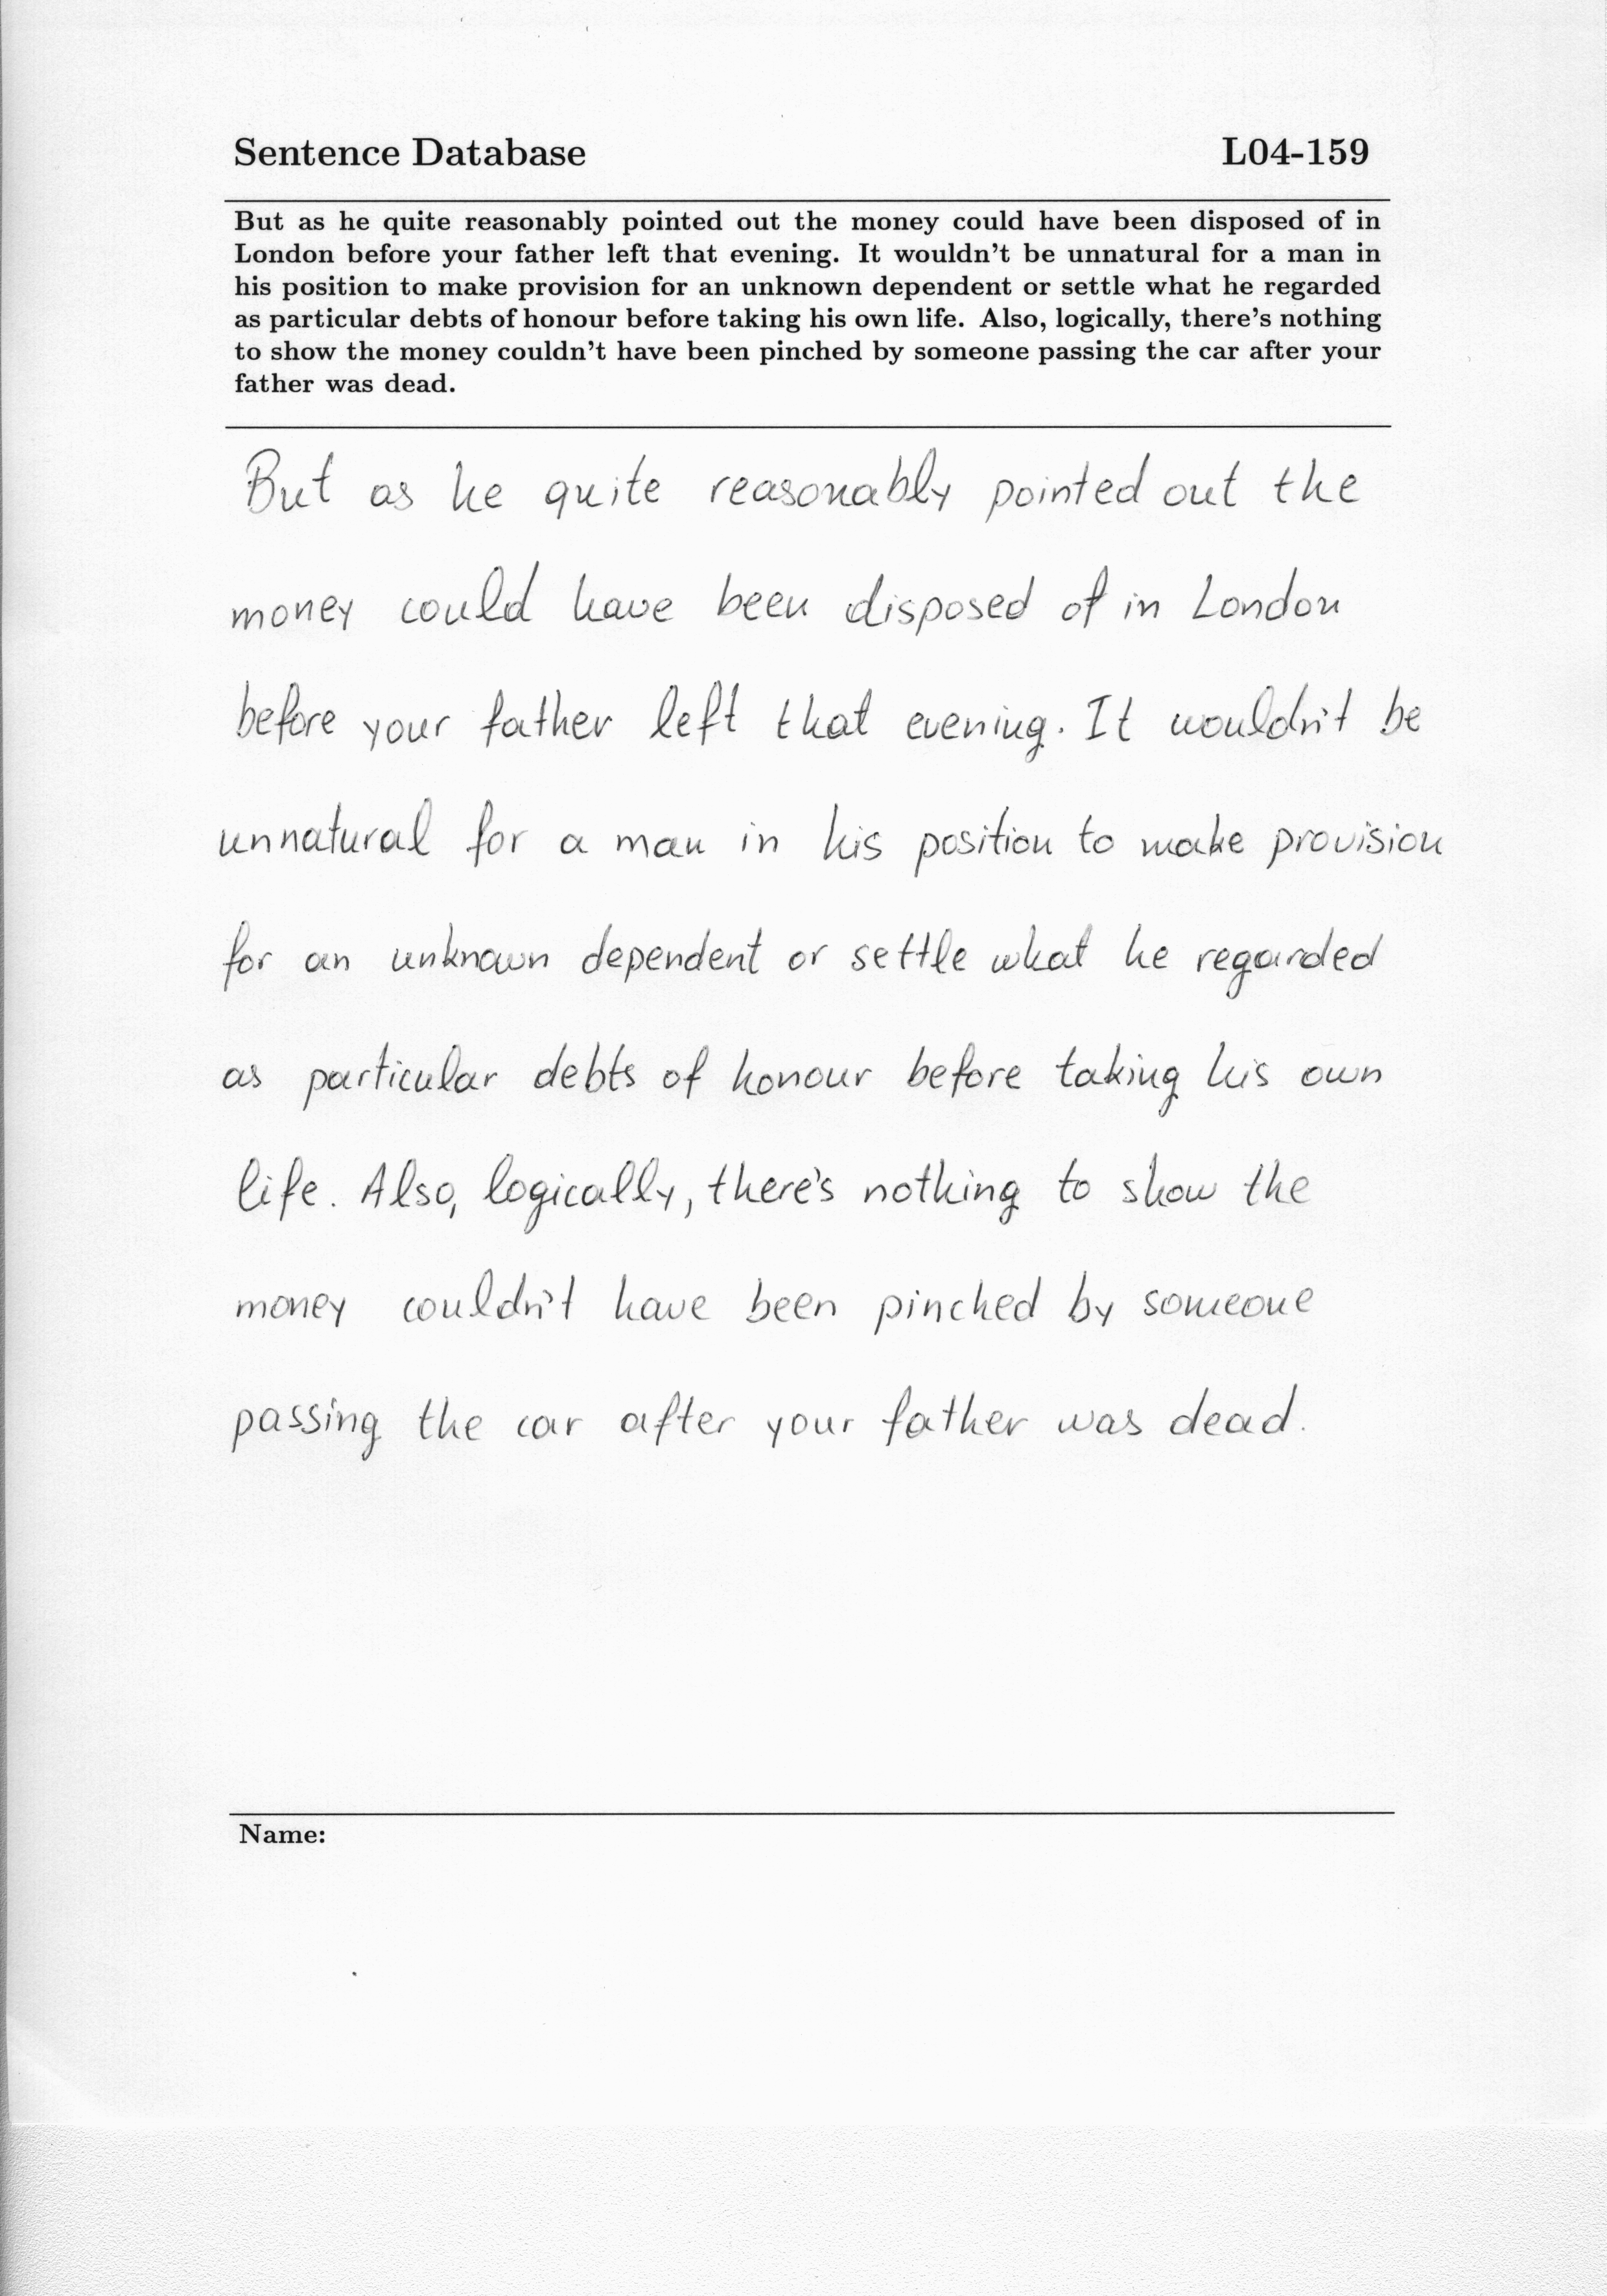 Sentence Database L04-159
But as he quite reasonably pointed out the money could have been disposed of in
London before your father left that evening. It wouldn't be unnatural for a man in
his position to make provision for an unknown dependent or settle what he regarded
as particular debts of honour before taking his own life. Also, logically, there's nothing
to show the money couldn't have been pinched by someone passing the car after your
father was dead.
But as he quite reasonably pointed out the
money could have been disposed of in London
before your father left that evening. It wouldn't be
unnatural for a man in his position to make provision
for an unknown dependent or settle what he regarded
as particular debts of honour before taking his own
life. Also, logically, there's nothing to show the
money couldn't have been pinched by someone
passing the car after your father was dead.
Name: